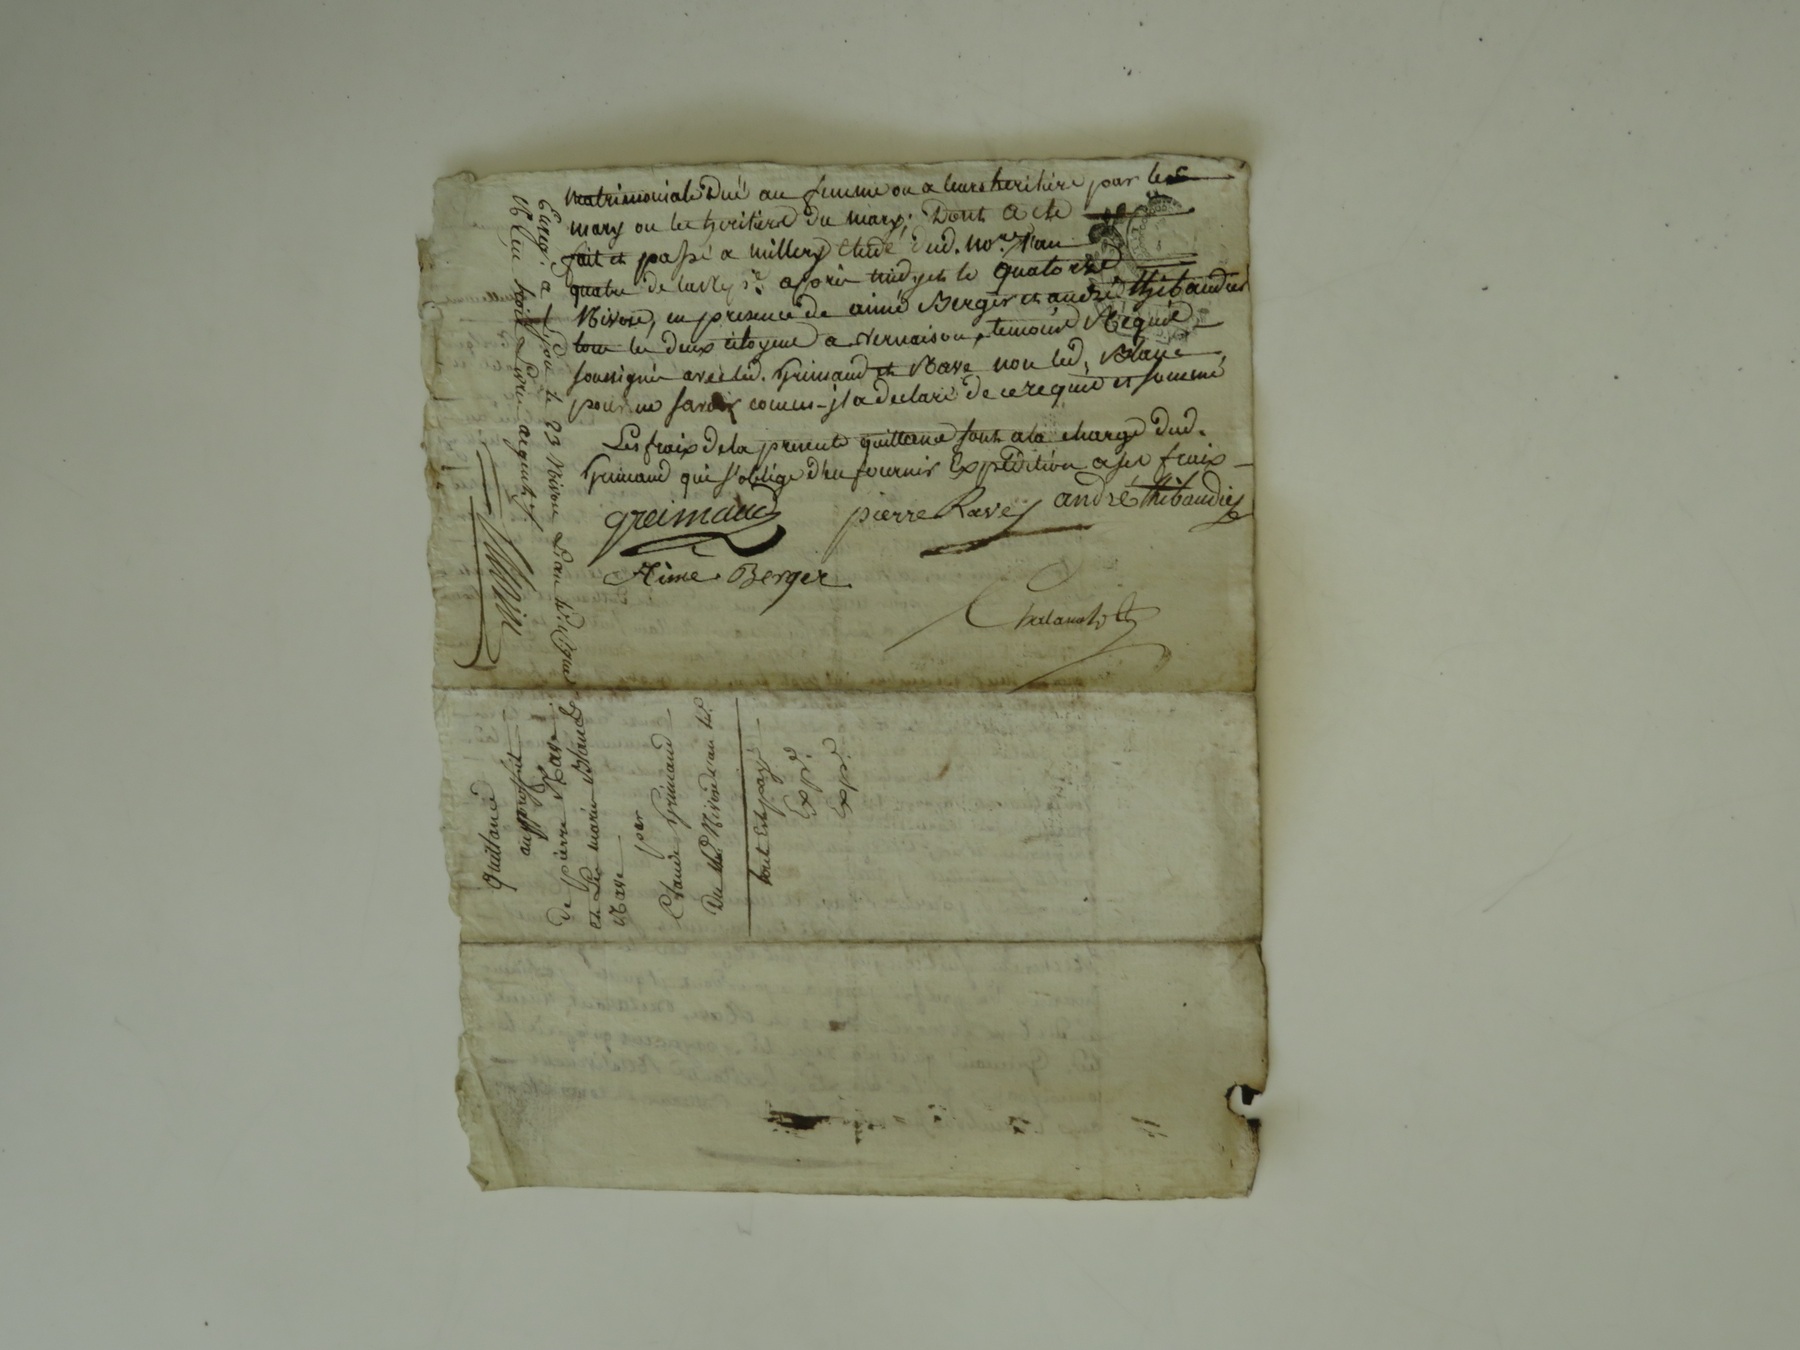 matrimoniale Dué au femme ou a leurs heritiére par les
mary ou les heritiere du mary; Dont acte
fait et passé a millery Etude dud. no.re l'an
quatre de la Rep.e apprès midy et le quatorze
Nivose, en presence de aimé Berger et andré thibaudier
tous les deux citoyens a vernaison, temoins Requis
soussignés avec led. Grimaud et Rave non led. Blanc
pour ne savoir comme il a declaré de ce requis et sommé
Les fraix de la presente quittance sont a la charge dud.
Grimaud qui s'oblige d'en fournir Expédition a ses fraix
greimaud pierre Rave andré thibaudier
Aime Berger
Enreg. a Lyon le 23 Nivose L'an
Reçu trois
Quittance
de pierre Rave
et de marie Blanc
Rave
par
Claude Grimaud
Du 14 Nivose an 4.e
Expé.
Expé.